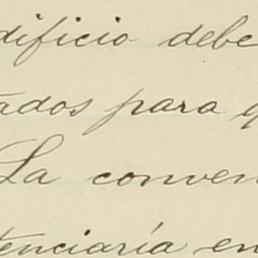 dificio debe
ados para q
La conven
tenciaría en